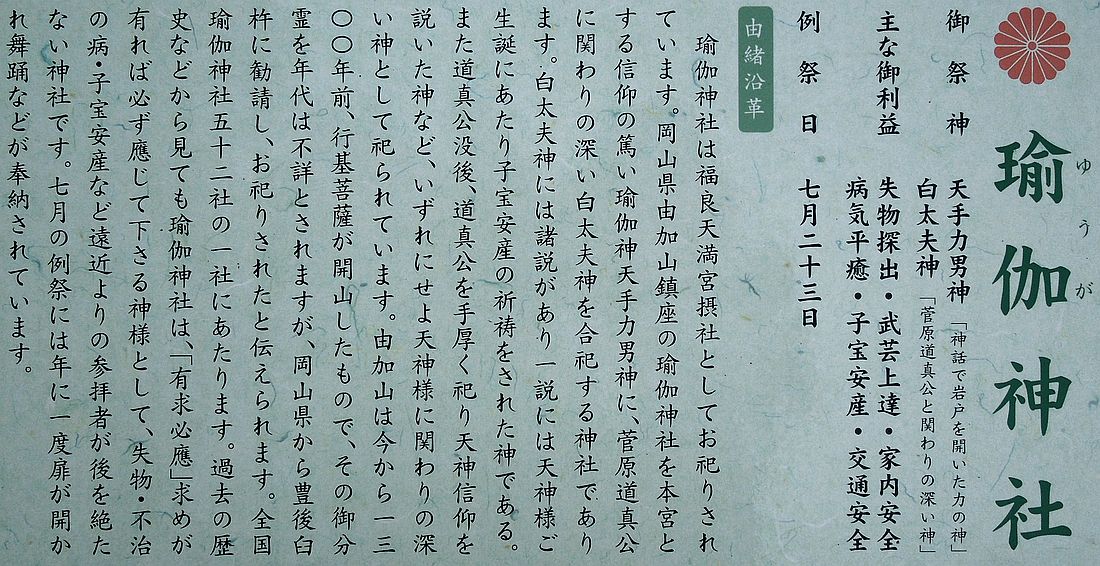 瑜伽神社
ゆうが
御祭神 天手力男神「神話で岩戸を開いた力の神」
白太夫神「菅原道真公と関わりの深い神」
主な御利益 失物探出・武芸上達・家内安全
病気平癒・子宝安産・交通安全
例祭日 七月二十三日
由緒沿革
瑜伽神社は福良天満宮摂社としてお祀りされ
ています。岡山県由加山鎮座の瑜伽神社を本宮と
する信仰の篤い瑜伽神天手力男神に、菅原道真公
に関わりの深い白太夫神を合祀する神社であり
ます。白太夫神には諸説があり一説には天神様ご
生誕にあたり子宝安産の祈祷をされた神である。
また道真公没後、道真公を手厚く祀り天神信仰を
説いた神など、いずれにせよ天神様に関わりの深
い神として祀られています。由加山は今から一三
〇〇年前、行基菩薩が開山したもので、その御分
霊を年代は不詳とされますが、岡山県から豊後臼
杵に勧請し、お祀りされたと伝えられます。全国
瑜伽神社五十二社の一社にあたります。過去の歴
史などから見ても瑜伽神社は、「有求必應」求めが
有れば必ず應じて下さる神様として、失物・不治
の病・子宝安産など遠近よりの参拝者が後を絶た
ない神社です。七月の例祭には年に一度扉が開か
れ舞踊などが奉納されています。